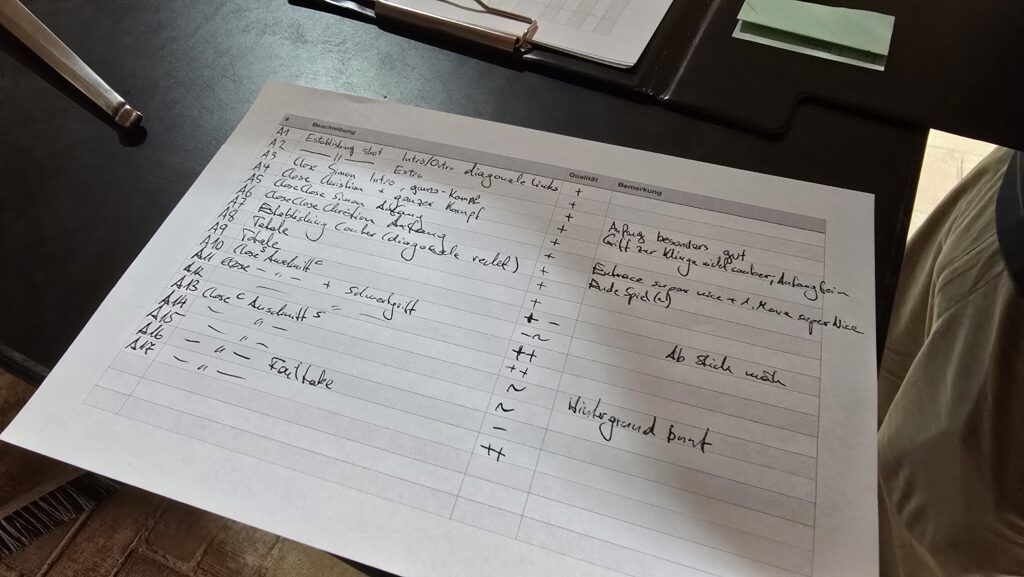 # Beschreibung Qualität Bemerkung
A1 Establishing shot Intro/Outro diagonale links +
A2 — " — Extro +
A3 Close Simon Intro, ganz-Kampf +
A4 Close Christian, ganzer Kampf + Anfang besonders gut
A5 CloseClose Simon Anfang + Griff zur Klinge nicht sauber, Anfang fein
A6 CloseClose Christian Anfang +
A7 Establishing (diagonale rechts) + Entrace super nice + 1. Move super Nice
A8 Totale + Ende
A9 Totale + -
A10 Close Auschnitt C
A11 Close — " — ++ Ab Stich
A12 + Schwertgriff ++
A13 Close C Auschnitt S ~
A14 — " — ~ Hintergrund bunt
A15 — " — -
A16 — " — Failtake ++
A17 — " —